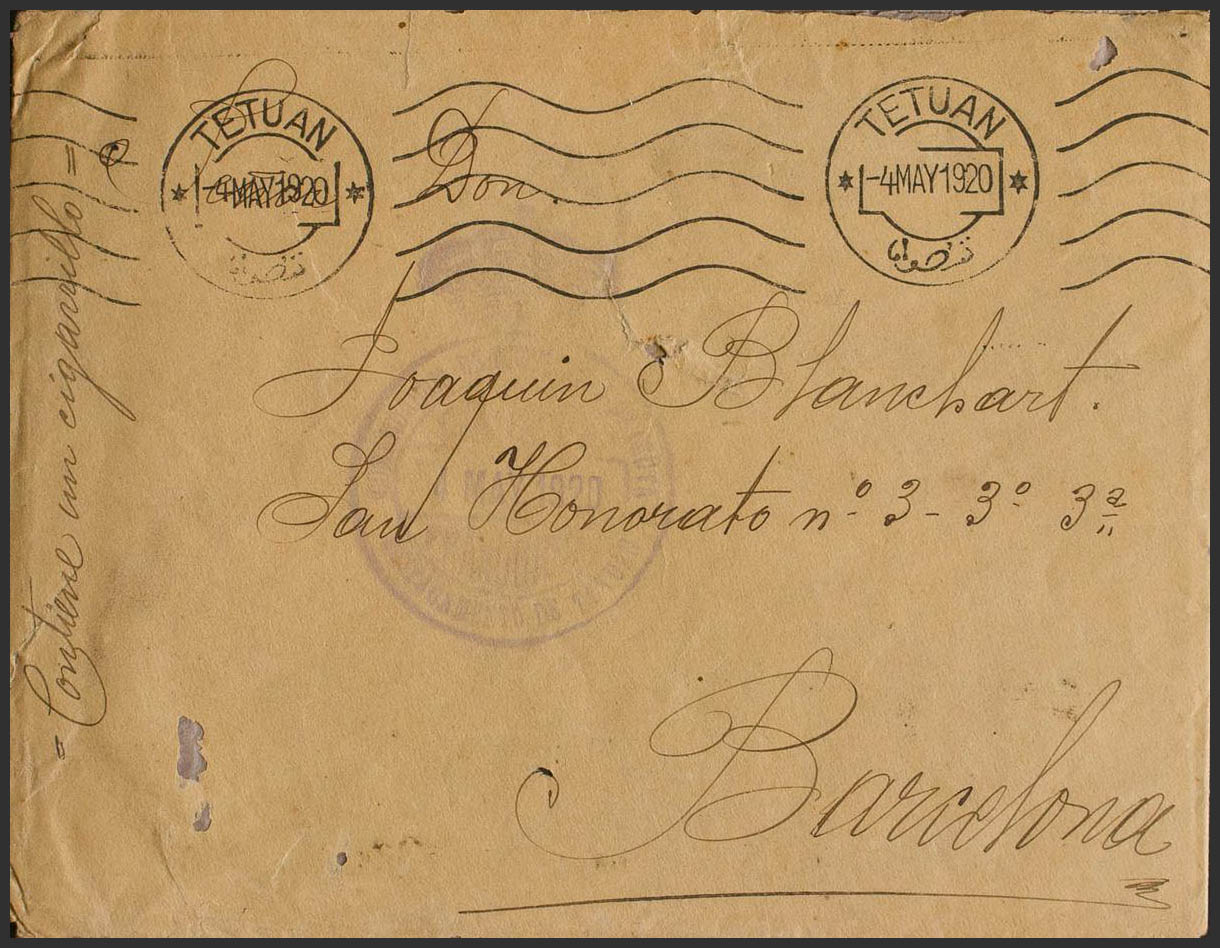 TETUAN
-4MAY1920
Don.
TETUAN
-4MAY1920
تطوان
Joaquin Blanchart.
San Honorato nº 3- 3º 3ª
Barcelona
= Contiene un cigarrillo =
DE TETUAN